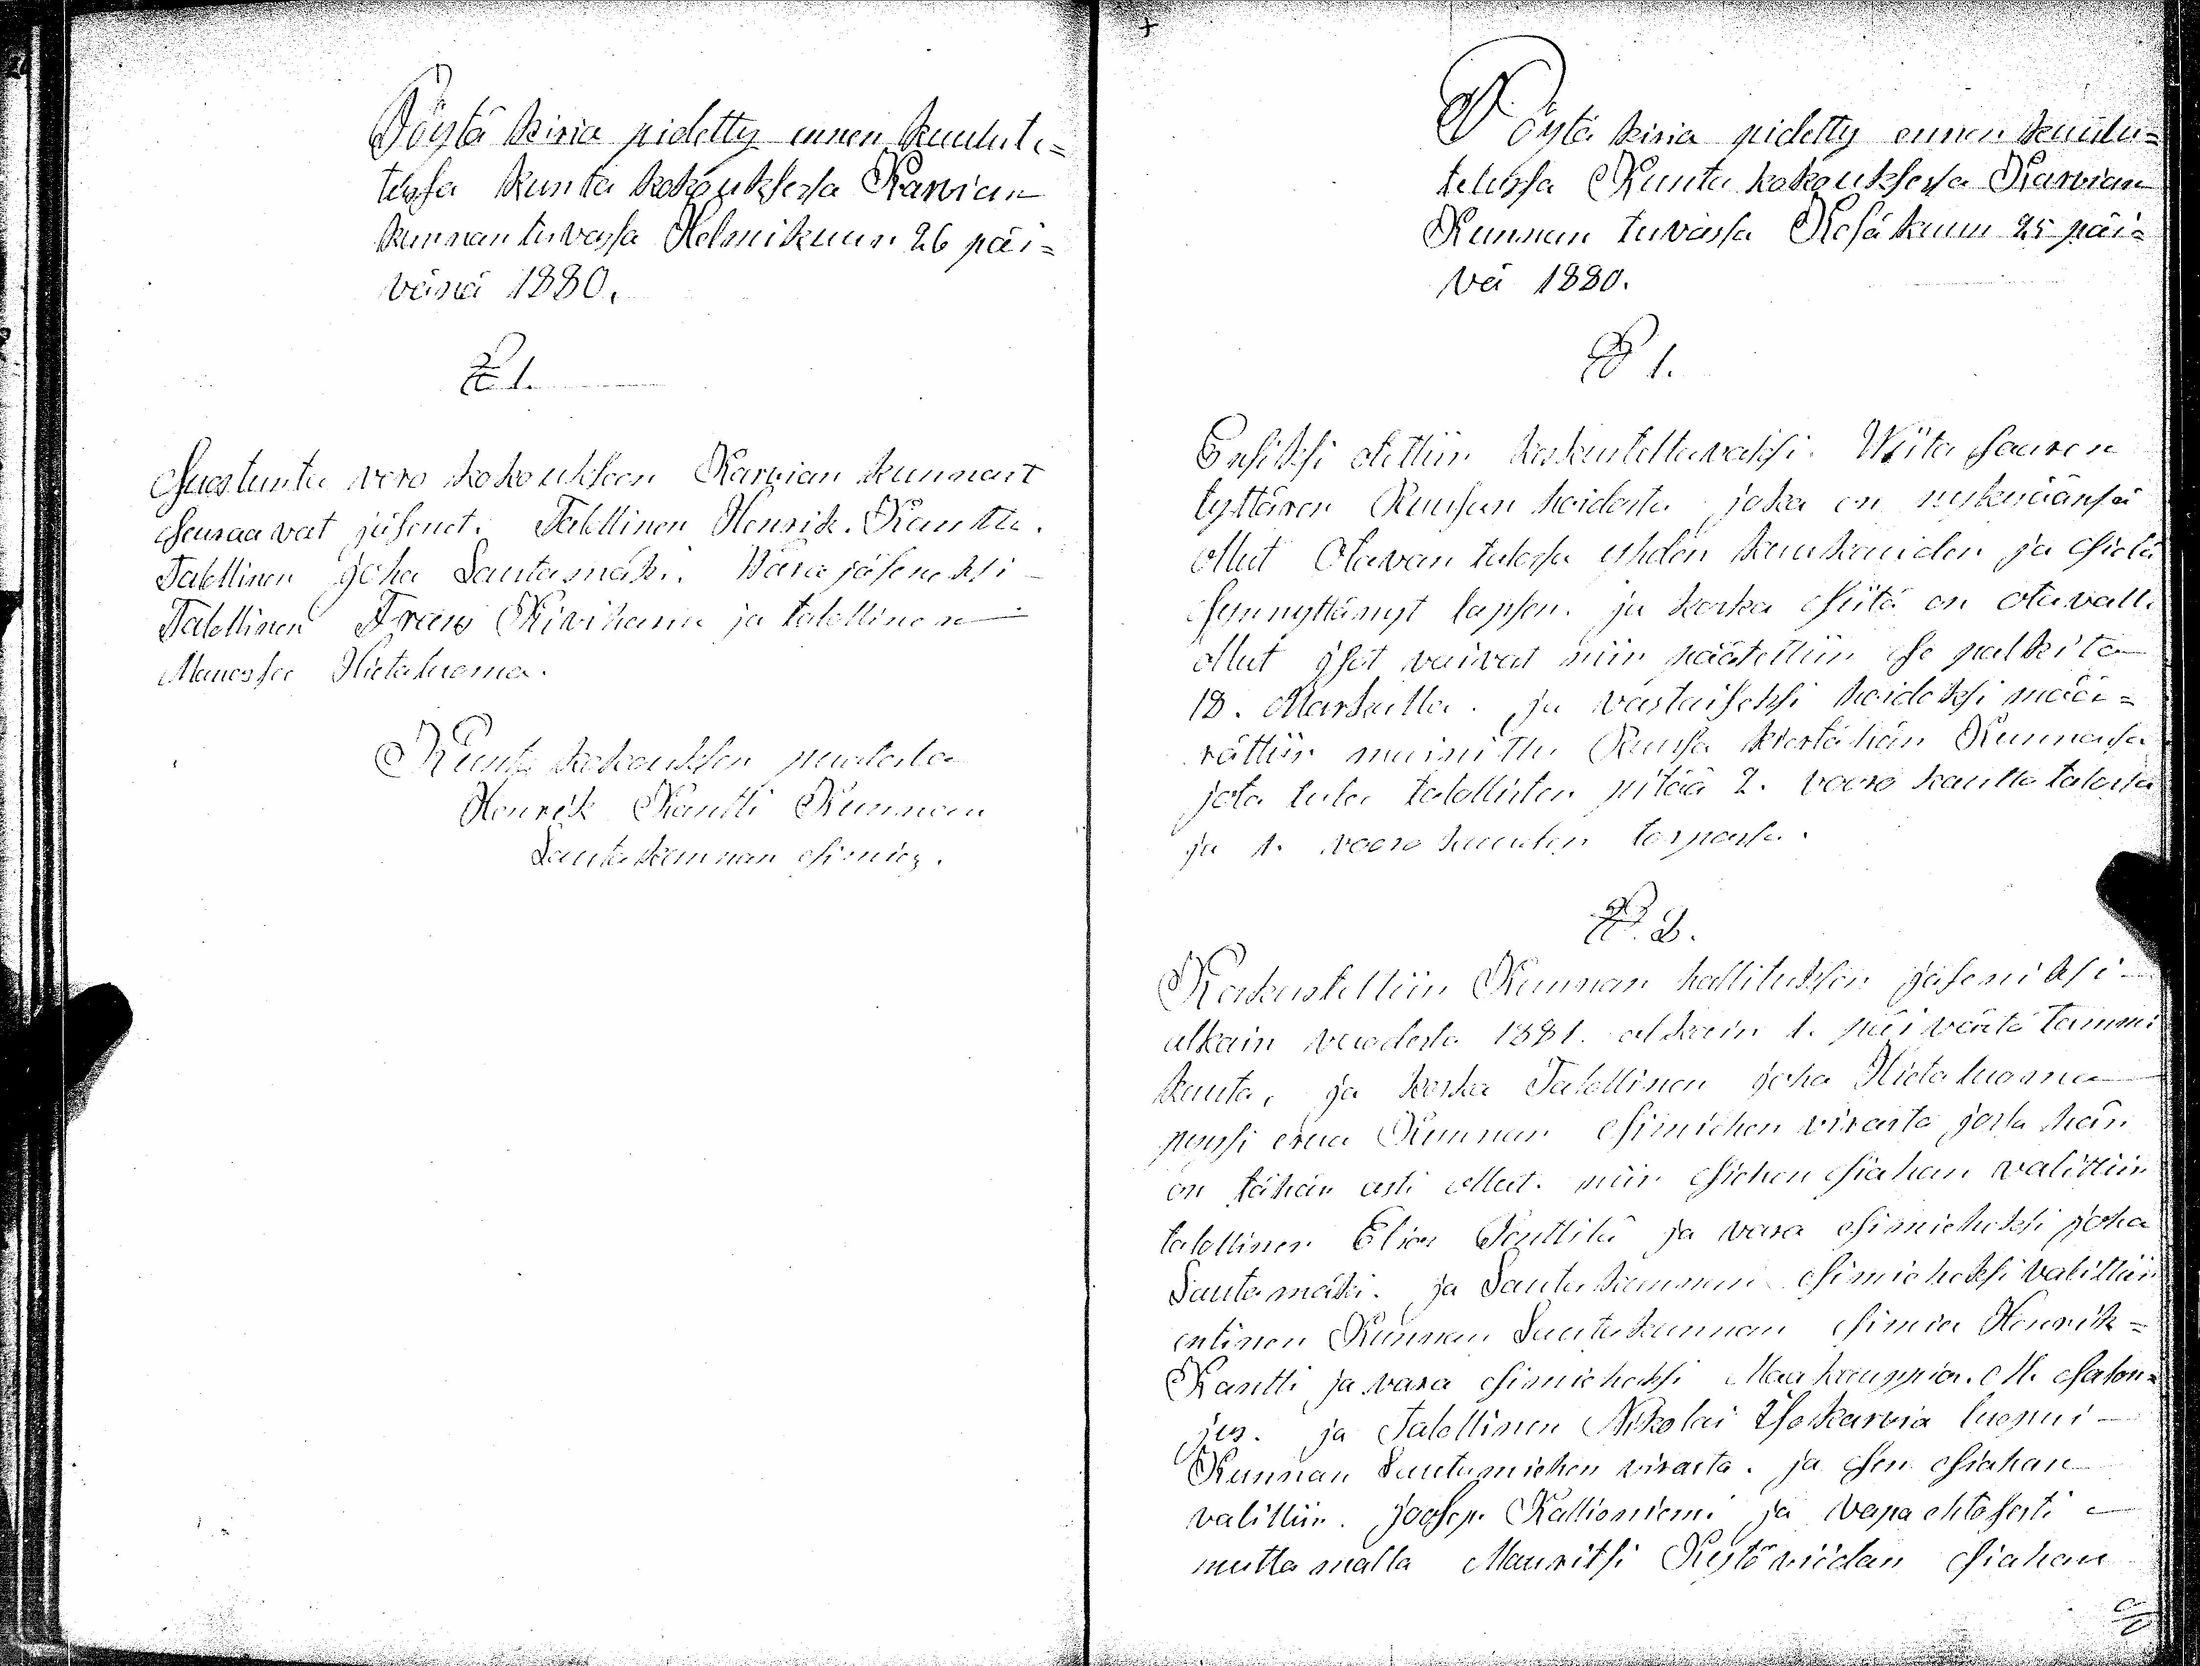 Pöytä kiria pidetty ennen kuulute=
tussa kunta kokouksessa Karvian
kunnan tuvassa Helmikuun 26 päi=
vänä 1880.
§ 1.
Suostunta vero kokouksen Karvian kunnast
seuraavat jäsenet. Talollinen Henrik. Kantti.
Talollinen Joha Lautamäki. Vara jäseneksi
Talollinen Frans Kivihama ja talollinen
Manasse Hietaluoma.
Kunta kokouksen puolesta
Henrik Kantti Kunnan
Lautakunnan esimies.
Pöytä kiria pidetty ennen kuulu=
tetussa Kunta kokouksessa Karvian
Kunnan tuvassa Kesäkuun 25 päi=
vä 1880.
§ 1.
Ensiksi otettiin keskusteltavaksi. Wiita saaren
tyttären Ruusun hoidosta joka on nykyiäänsä
ollut Olavan talossa yhden kuukauden ja sielä
synnyttänyt lapsen. ja koska siitä on otavalla
ollut isot vaivat niin päätettiin se palkita
18. Markalla. ja vastaiseksi hoidoksi mää=
rättiin mainittu Ruusa kiertähän Kunnassa
jota tulee talollisten pitää 2. vuoro kautta talossa
ja 1. vuoro kauden torpassa.
§. 2.
Keskusteltiin Kunnan hallituksen jäseniksi
alkain vuodesta 1881. alkain 1. päivästä tammi
kuuta, ja koska Talollinen Joha Hietaluoma
pyysi eroa Kunnan esimiehen virasta josta hän
on tähän asti ollut. niin siehen siahan valittiin
talollinen Elias Penttilä ja vara esimieheksi Joha
Lautamäki. ja Lautakunnan esimieheksi valittiin
entinen Kunnan Lautakunnan esimies Henrik=
Kantti ja vara esimieheksi Maakauppias. M. Salon=
jus. ja Talollinen Nikolai Ysokarvia luopui
Kunnan Lautamiehen virasta. ja sen siahan
valittiin. Joosep. Kallioniemi ja vapaehtosesti
muttamalla Mauritsi Kytöviidan siahan